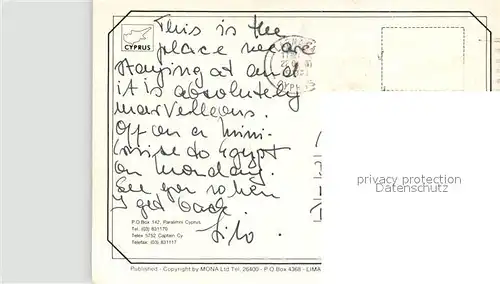 This is the
CYPRUS
place we are
staying at and
it is absolutely
marvelleous.
Off on a mini-
cruise to Egypt
on monday.
See you when
I get back.
P.O.Box 142, Paralimni Cyprus
Tel. (03) 831170
Telex 5752 Captain Cy
Telefax: (03) 831117
privacy protection
Datenschutz
Published - Copyright by MONA Ltd Tel. 26400 - P.O Box 4368 - LIMA